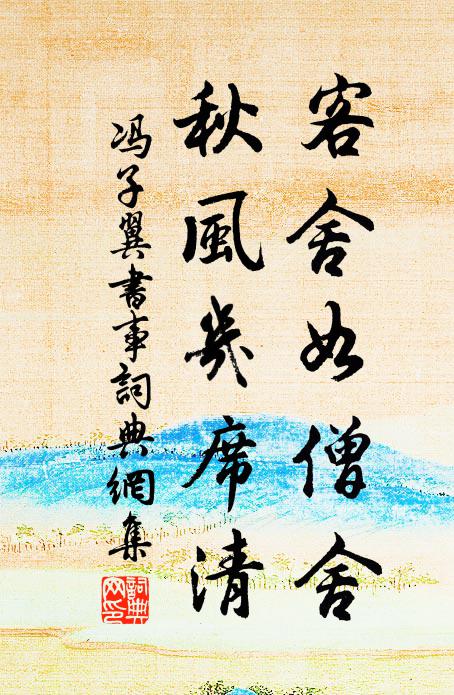 客舍如僧舍
秋風幾席清
冯子翼書事詞典網集
詞典網印